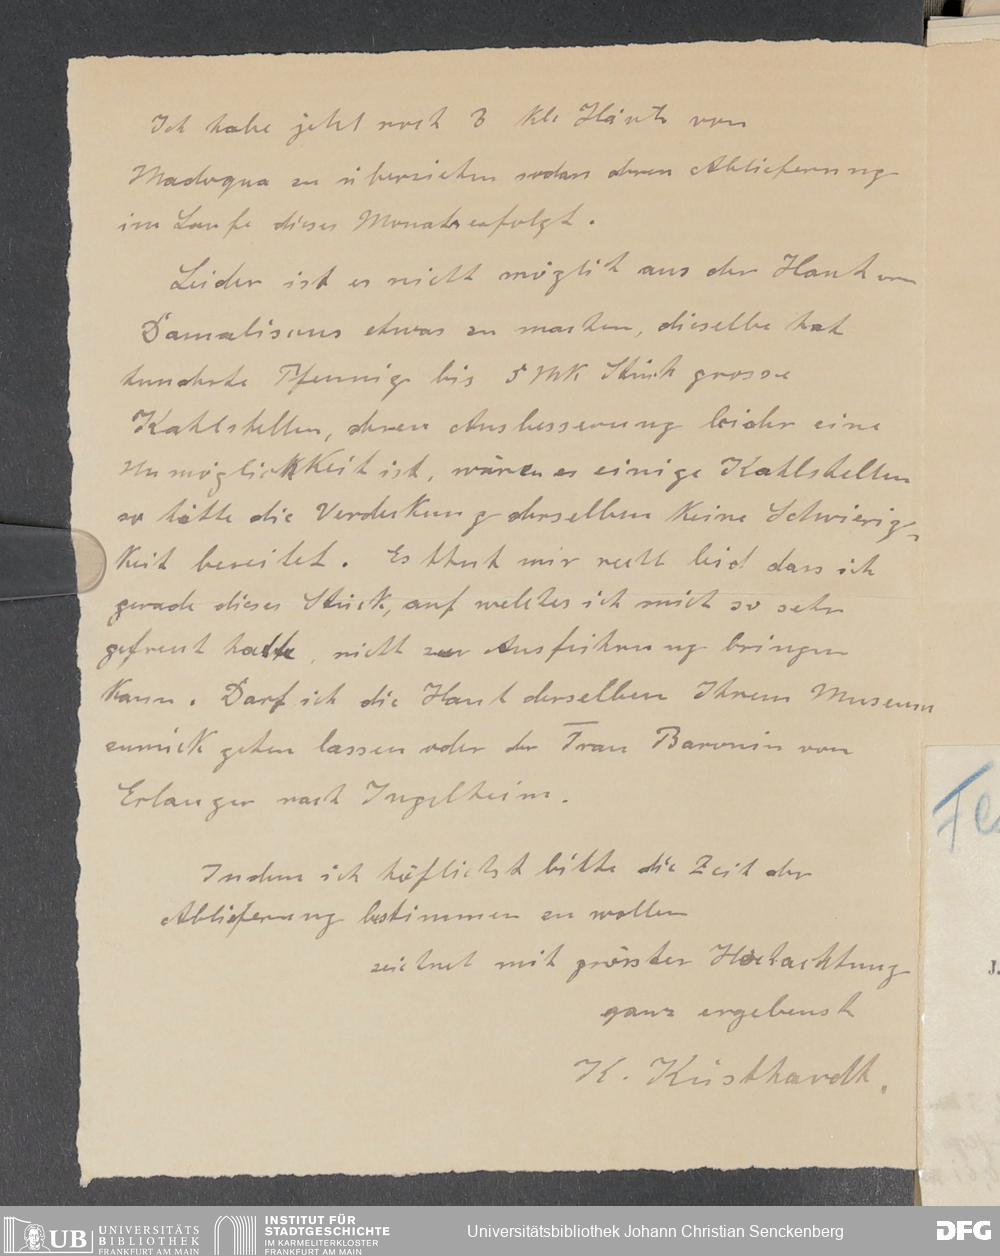 Ich habe jetzt noch 3 kl. Häute von
Madoqua zu überziehen sodass deren Ablieferung
im Laufe dieses Monats erfolgt.
Leider ist es nicht möglich aus der Haut von
Damaliscus etwas zu machen, dieselbe hat
hunderte Pfennig bis 5 Mk Stück grosse
Kahlstellen, deren Ausbesserung leider eine
Unmöglichkeit ist, wären es einige Kahlstellen
so hätte die Verdeckung derselben keine Schwierig-
keit bereitet. Es thut mir recht leid dass ich
gerade dieses Stück, auf welches ich mich so sehr
gefreut hatte, nicht zur Ausführung bringen
kann. Darf ich die Haut derselben Ihrem Museum
zurück gehen lassen oder der Frau Baronin von
Erlanger nach Ingelheim.
Indem ich höflichst bitte die Zeit der
Ablieferung bestimmen zu wollen
zeichnet mit grösster Hochachtung
ganz ergebenst
K. Küsthardt.
Fe
J.
UB UNIVERSITÄTS
BIBLIOTHEK
FRANKFURT AM MAIN
INSTITUT FÜR
STADTGESCHICHTE
IM KARMELITERKLOSTER
FRANKFURT AM MAIN
Universitätsbibliothek Johann Christian Senckenberg
DFG